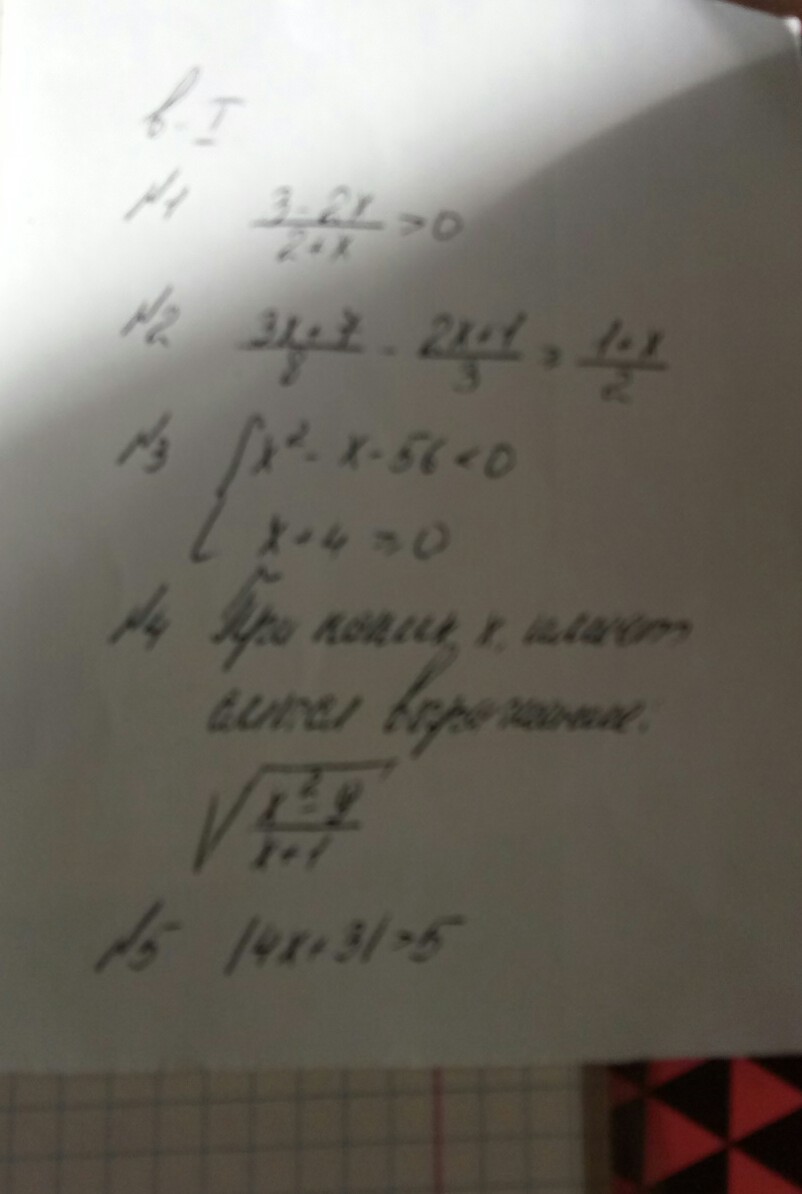 в-I
№1 (3-2x)/(2+x) > 0
№2 (3x+7)/8 - (2x+1)/3 > (1+x)/2
№3 { x² - x - 56 < 0
x+4 > 0
№4 При каких x, имеет
смысл выражение:
√((x²-9)/(x+1))
№5 |4x+3| > 5